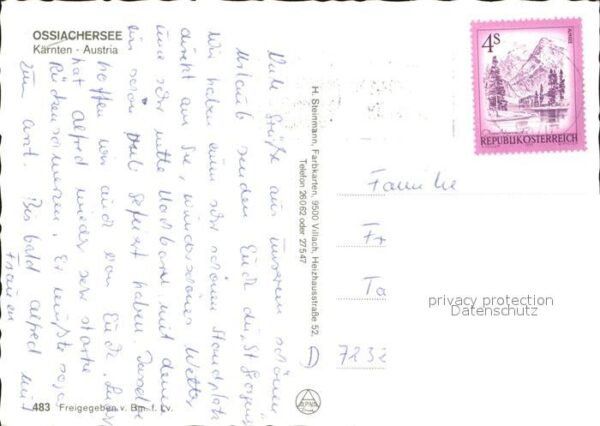 OSSIACHERSEE
Kärnten · Austria
Viele Grüße aus unserem schönen
Urlaub senden Euch die
Wir haben einen sehr schönen Standplatz
direkt am See, wunderschönes Wetter
und sehr nette Nachbarn mit denen
wir schon viel gefeiert haben.
hoffen wir auch von Euch. Leider
hat Alfred wieder sehr starke
Rückenschmerzen. Er mußte sogar
zum Arzt. Bis bald Alfred mit
Frauen
483 Freigegeben v. Bm. f. Lv.
H. Steinmann, Farbkarten, 9500 Villach, Heizhausstraße 52,
Telefon 26062 oder 27547
ALPINA
4S
REPUBLIK ÖSTERREICH
Familie
Fr
To
D 7232
privacy protection
Datenschutz